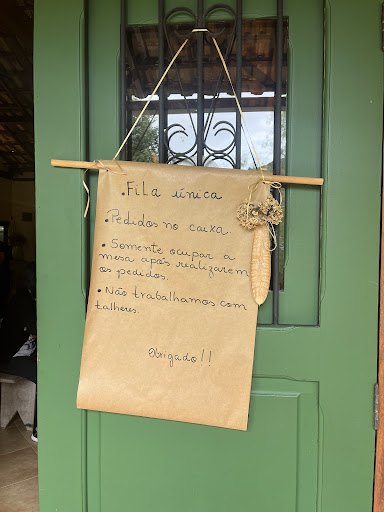 • Fila única
• Pedidos no caixa.
• Somente ocupar a
mesa após realizarem
os pedidos.
• Não trabalhamos com
talheres.
Obrigado!!